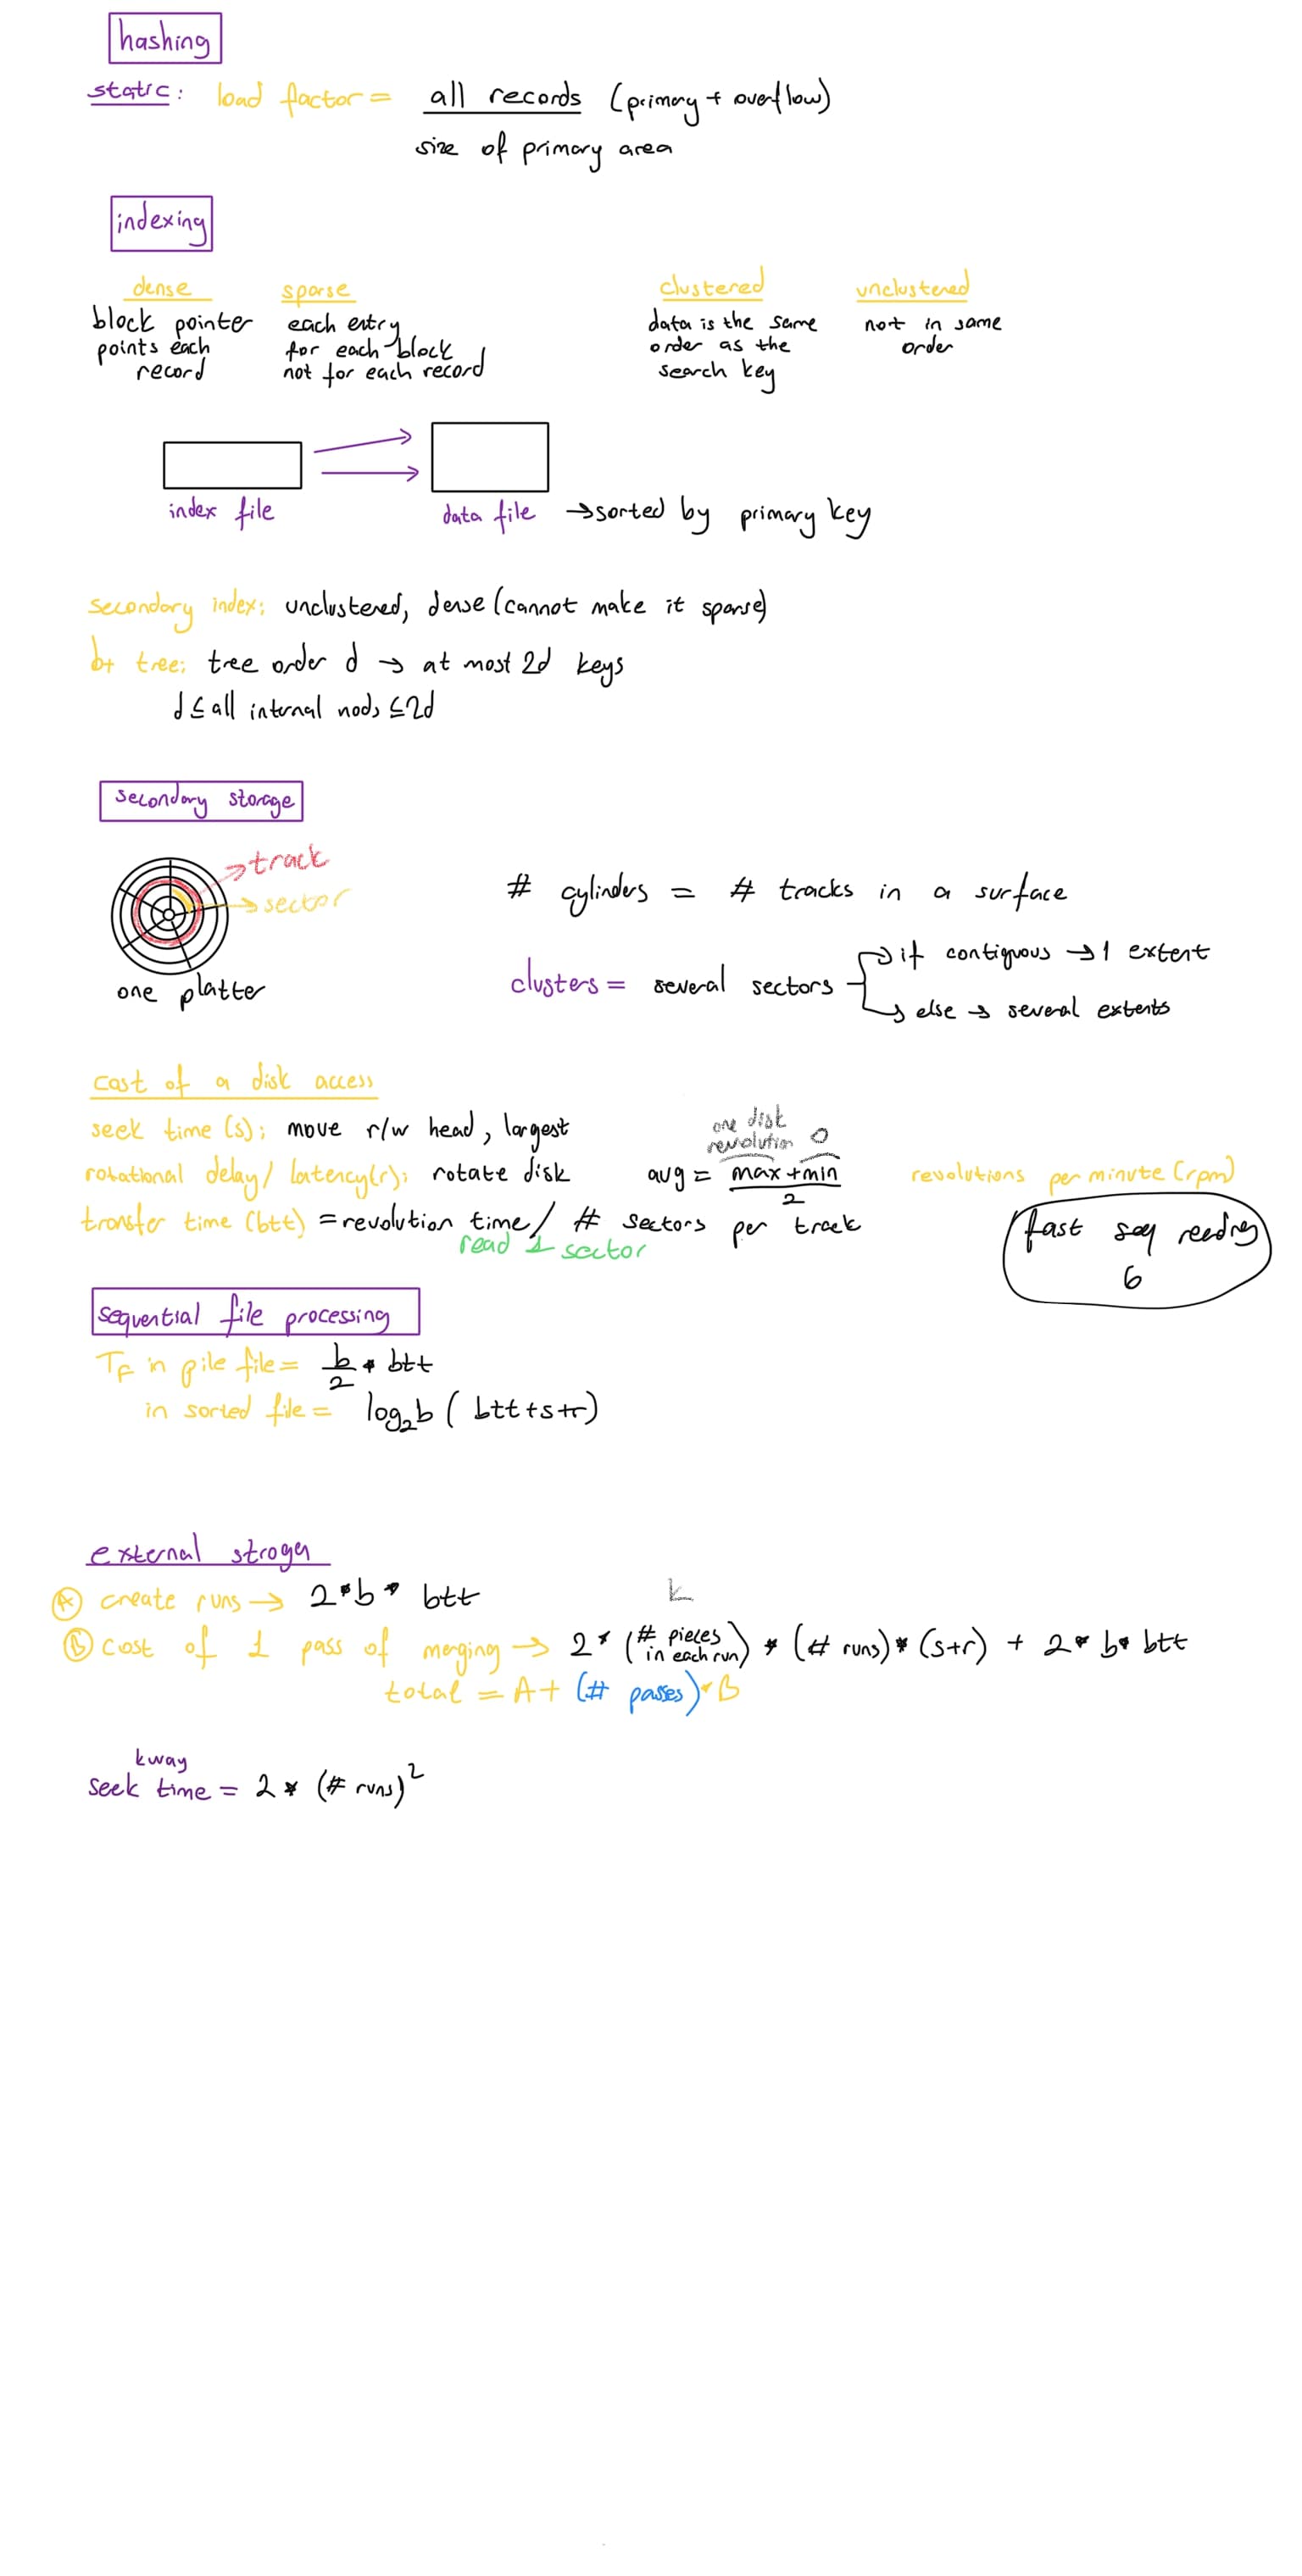 hashing
static: load factor = all records (primary + overflow)
size of primary area
indexing
dense
block pointer
points each
record
sparse
each entry
for each block
not for each record
clustered
data is the same
order as the
search key
unclustered
not in same
order
index file
data file → sorted by primary key
secondary index: unclustered, dense (cannot make it sparse)
b+ tree: tree order d → at most 2d keys
d ≤ all internal nods ≤ 2d
secondary storage
track
sector
one platter
# cylinders = # tracks in a surface
clusters = several sectors
→ if contiguous → 1 extent
→ else → several extents
cost of a disk access
seek time (s): move r/w head, largest
rotational delay / latency (r): rotate disk
one disk
revolution 0
avg = max + min
2
revolutions per minute (rpm)
transfer time (btt) = revolution time / # sectors per track
read 1 sector
fast seq reading
6
sequential file processing
TF in pile file = b/2 * btt
in sorted file = log₂b ( btt + s + r)
external stroger
A create runs → 2 * b * btt
k
B cost of 1 pass of merging → 2 * (# pieces in each run) * (# runs) * (s+r) + 2 * b * btt
total = A + (# passes) * B
kway
seek time = 2 * (# runs)²